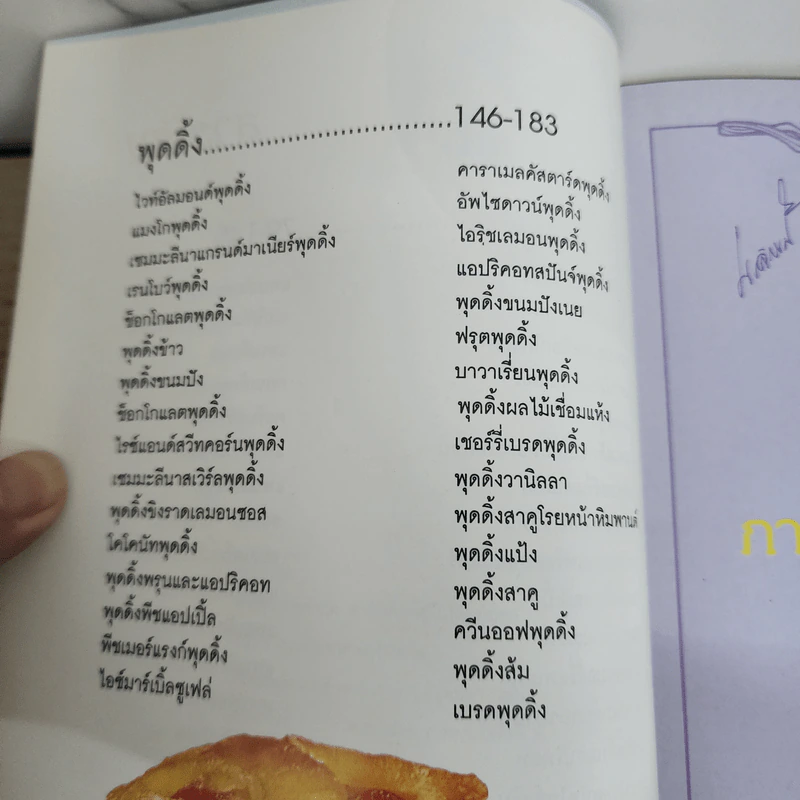 พุดดิ้ง........................................146-183
ไวท์อัลมอนด์พุดดิ้ง
แมงโกพุดดิ้ง
เซมมะลีนาแกรนด์มาเนียร์พุดดิ้ง
เรนโบว์พุดดิ้ง
ช็อกโกแลตพุดดิ้ง
พุดดิ้งข้าว
พุดดิ้งขนมปัง
ช็อกโกแลตพุดดิ้ง
ไรซ์แอนด์สวีทคอร์นพุดดิ้ง
เซมมะลีนาสเวิร์ลพุดดิ้ง
พุดดิ้งขิงราดเลมอนซอส
โคโคนัทพุดดิ้ง
พุดดิ้งพรุนและแอปริคอท
พุดดิ้งพีชแอปเปิ้ล
พีชเมอร์แรงก์พุดดิ้ง
ไอซ์มาร์เบิ้ลซูเฟล่
คาราเมลคัสตาร์ดพุดดิ้ง
อัพไซดาวน์พุดดิ้ง
ไอริชเลมอนพุดดิ้ง
แอปริคอทสปันจ์พุดดิ้ง
พุดดิ้งขนมปังเนย
ฟรุตพุดดิ้ง
บาวาเรี่ยนพุดดิ้ง
พุดดิ้งผลไม้เชื่อมแห้ง
เชอร์รี่เบรดพุดดิ้ง
พุดดิ้งวานิลลา
พุดดิ้งสาคูโรยหน้าหิมพานต์
พุดดิ้งแป้ง
พุดดิ้งสาคู
ควีนออฟพุดดิ้ง
พุดดิ้งส้ม
เบรดพุดดิ้ง